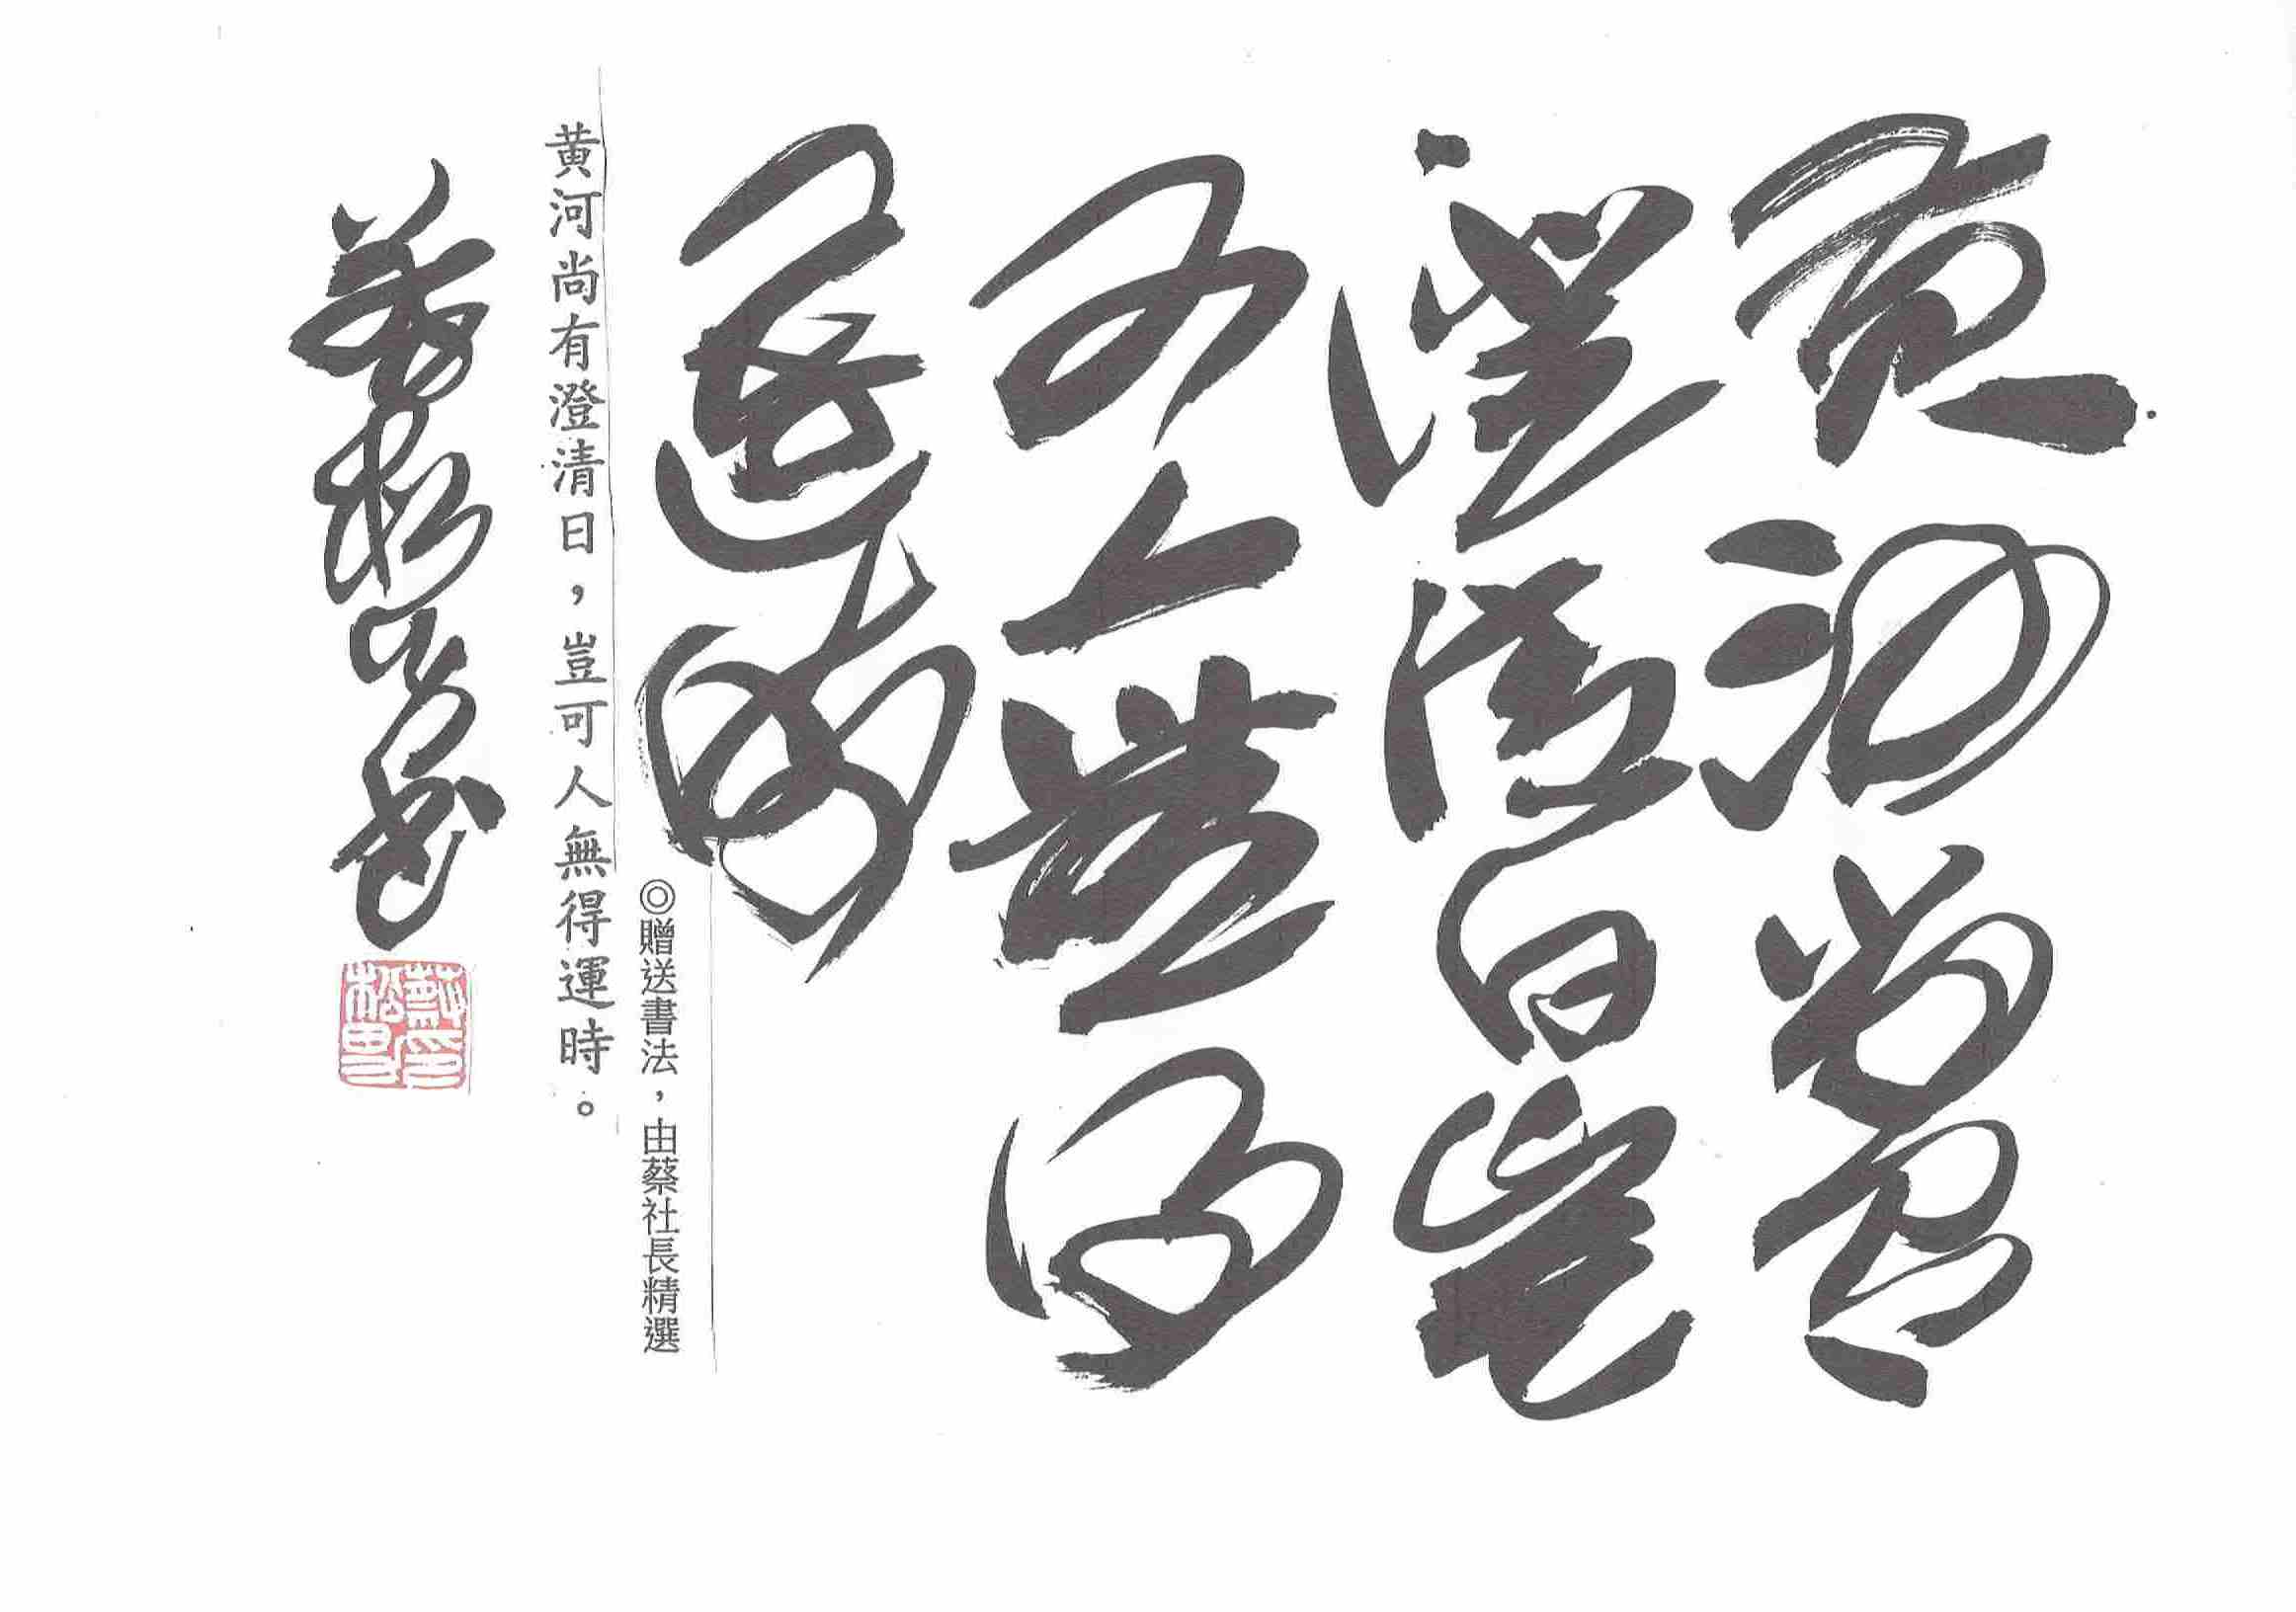 黄河尚有
澄清日豈
可人無得
運時
◎贈送書法，由蔡社長精選
黄河尚有澄清日，豈可人無得運時。